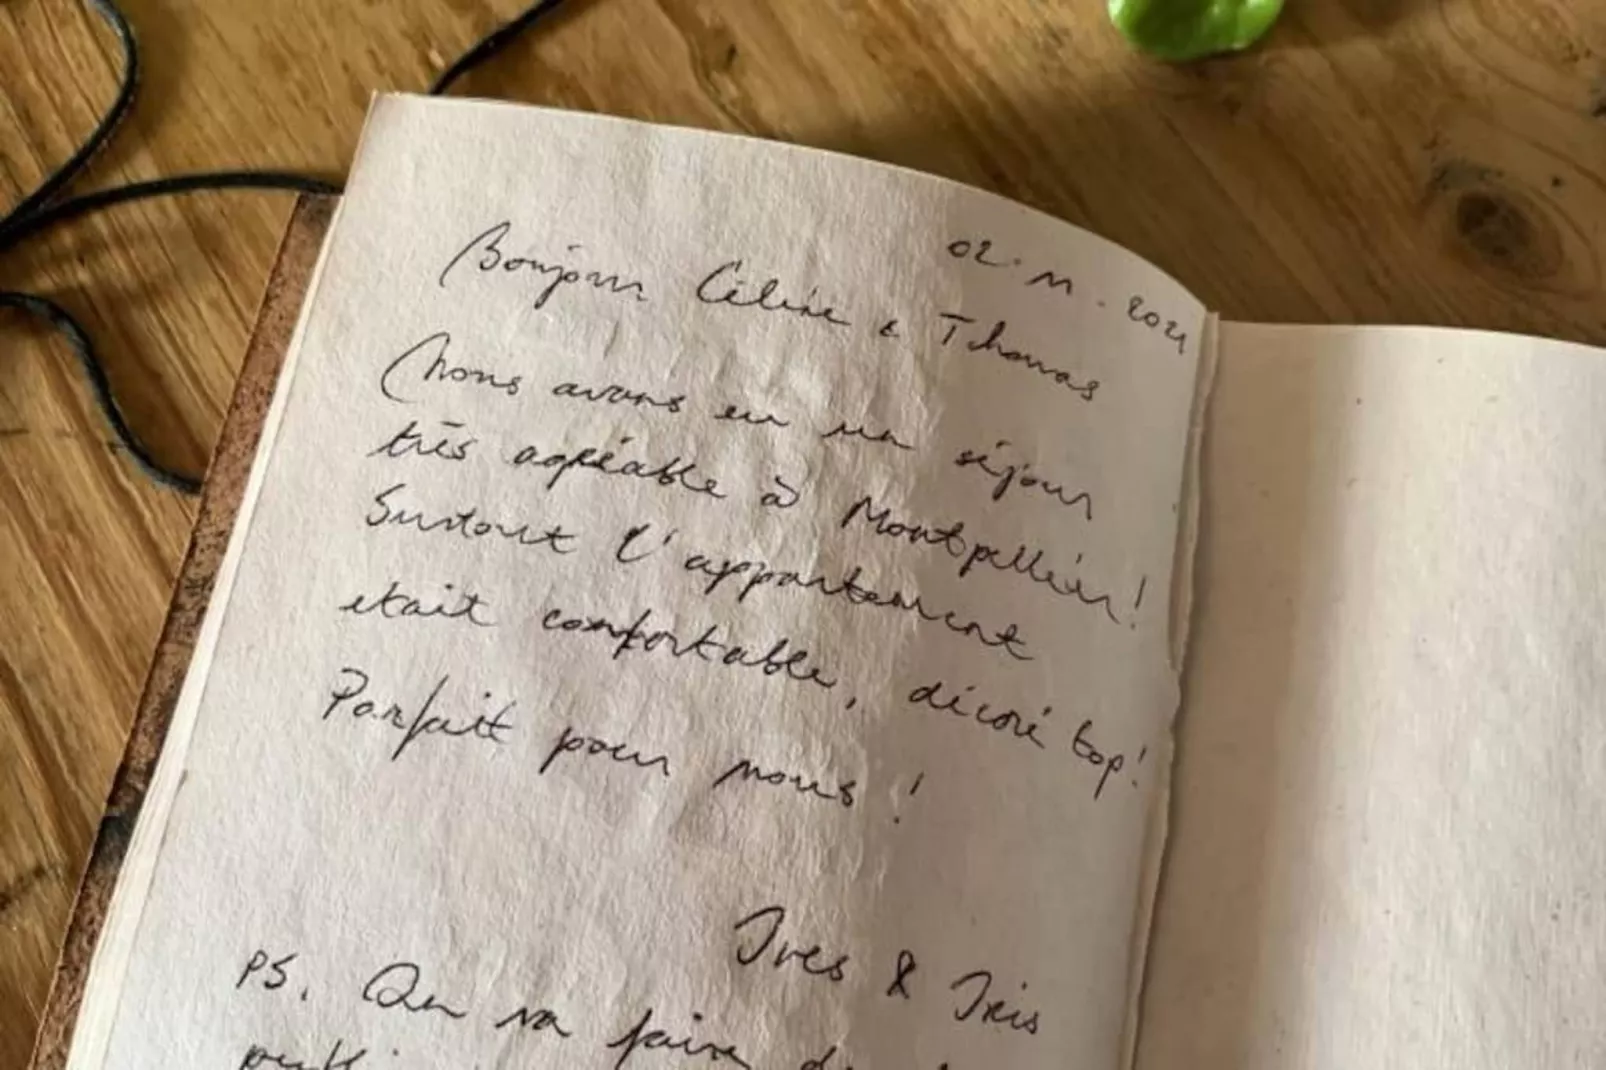 02.11.2021
Bonjour Céline & Thomas
Nous avons eu un séjour
très agréable à Montpellier!
Surtout l'appartement
etait confortable, décoré top!
Parfait pour nous !
Ives & Iris
PS. On va faire de la